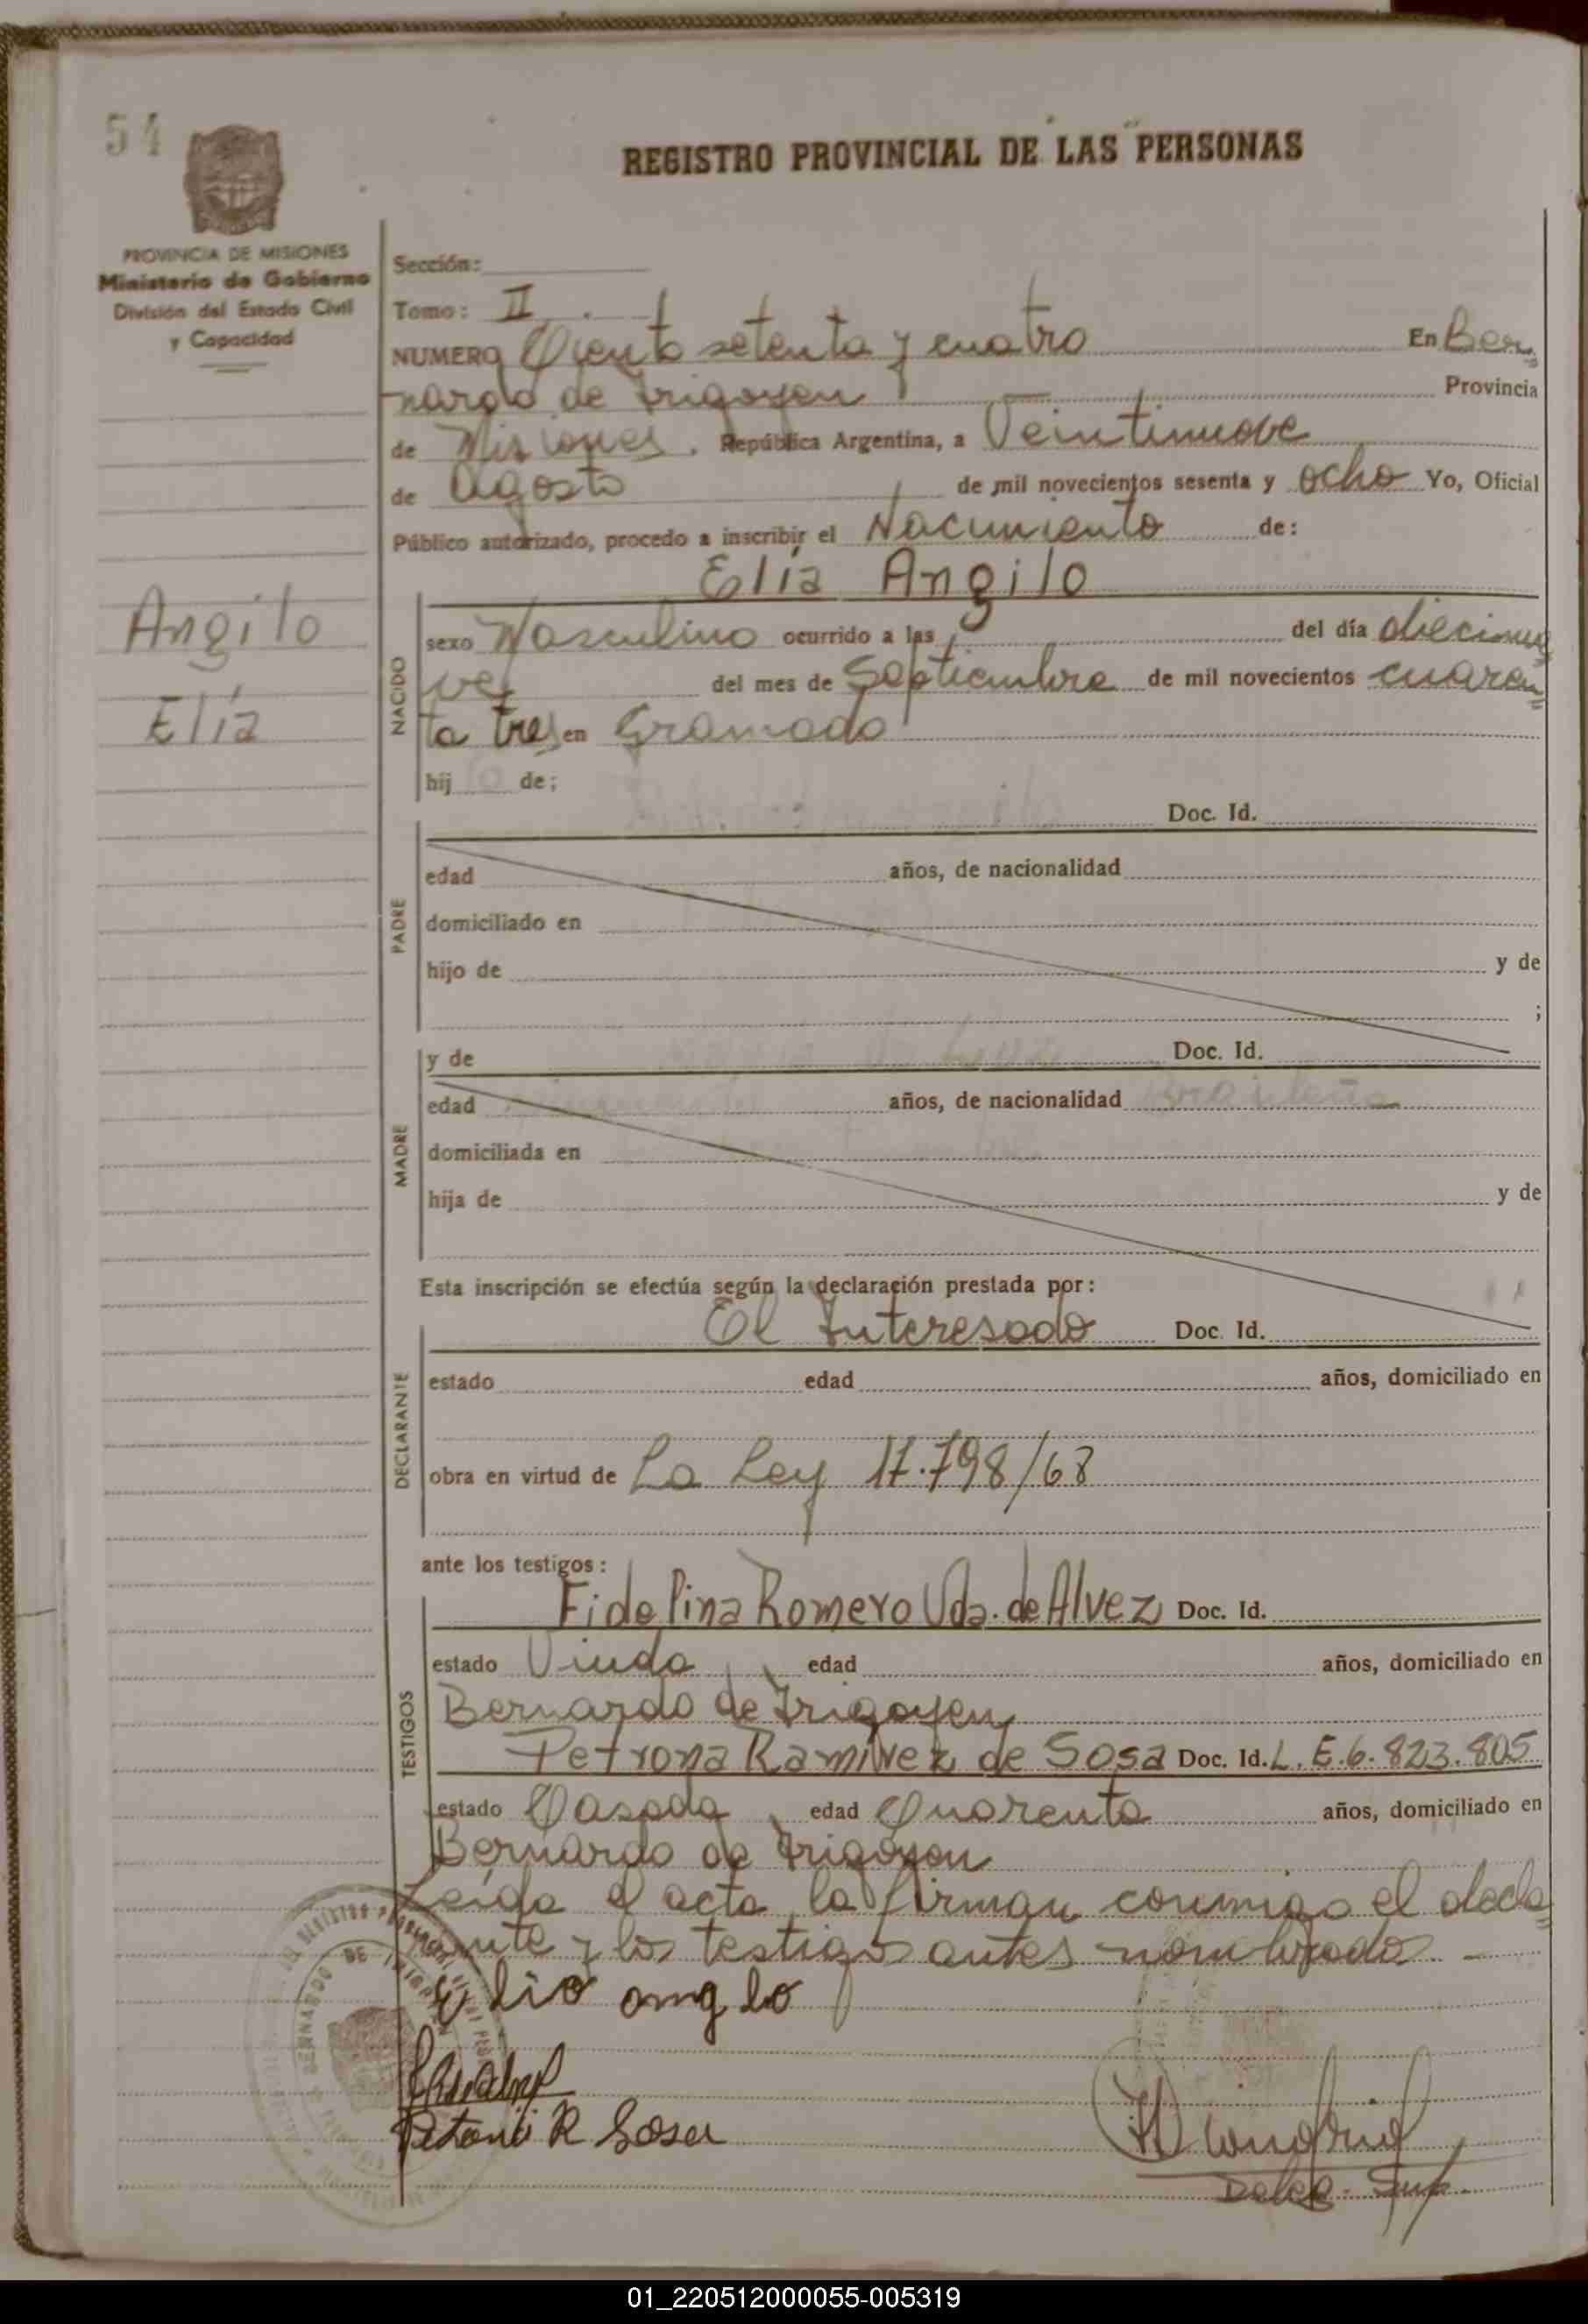 54
REGISTRO PROVINCIAL DE LAS PERSONAS
PROVINCIA DE MISIONES
Ministerio de Gobierno
División del Estado Civil
y Capacidad
Sección:
Tomo: II
NUMERO Ciento setenta y cuatro En Ber=
nardo de Irigoyen Provincia
de Misiones, República Argentina, a Veintinueve
de Agosto de mil novecientos sesenta y ocho Yo, Oficial
Público autorizado, procedo a inscribir el Nacimiento de:
Elía Angilo
Angilo
Elía
NACIDO
sexo Masculino ocurrido a las del día diecinue=
ve del mes de Septiembre de mil novecientos cuaren=
ta tres en Gramado
hij o de;
Doc. Id.
PADRE
edad años, de nacionalidad
domiciliado en
hijo de y de
;
y de Doc. Id.
MADRE
edad años, de nacionalidad
domiciliada en
hija de y de
Esta inscripción se efectúa según la declaración prestada por:
El Interesado Doc. Id.
DECLARANTE
estado edad años, domiciliado en
obra en virtud de La Ley 17.798/68
ante los testigos:
Fidelina Romero Vda. de Alvez Doc. Id.
TESTIGOS
estado Viuda, edad años, domiciliado en
Bernardo de Irigoyen
Petrona Ramirez de Sosa Doc. Id. L.E.6.823.805
estado Casada, edad Cuarenta años, domiciliado en
Bernardo de Irigoyen
Leída el acta, la firman conmigo el decla=
rante y los testigos antes nombrados
Elio anglo
R Sosa
01_220512000055-005319